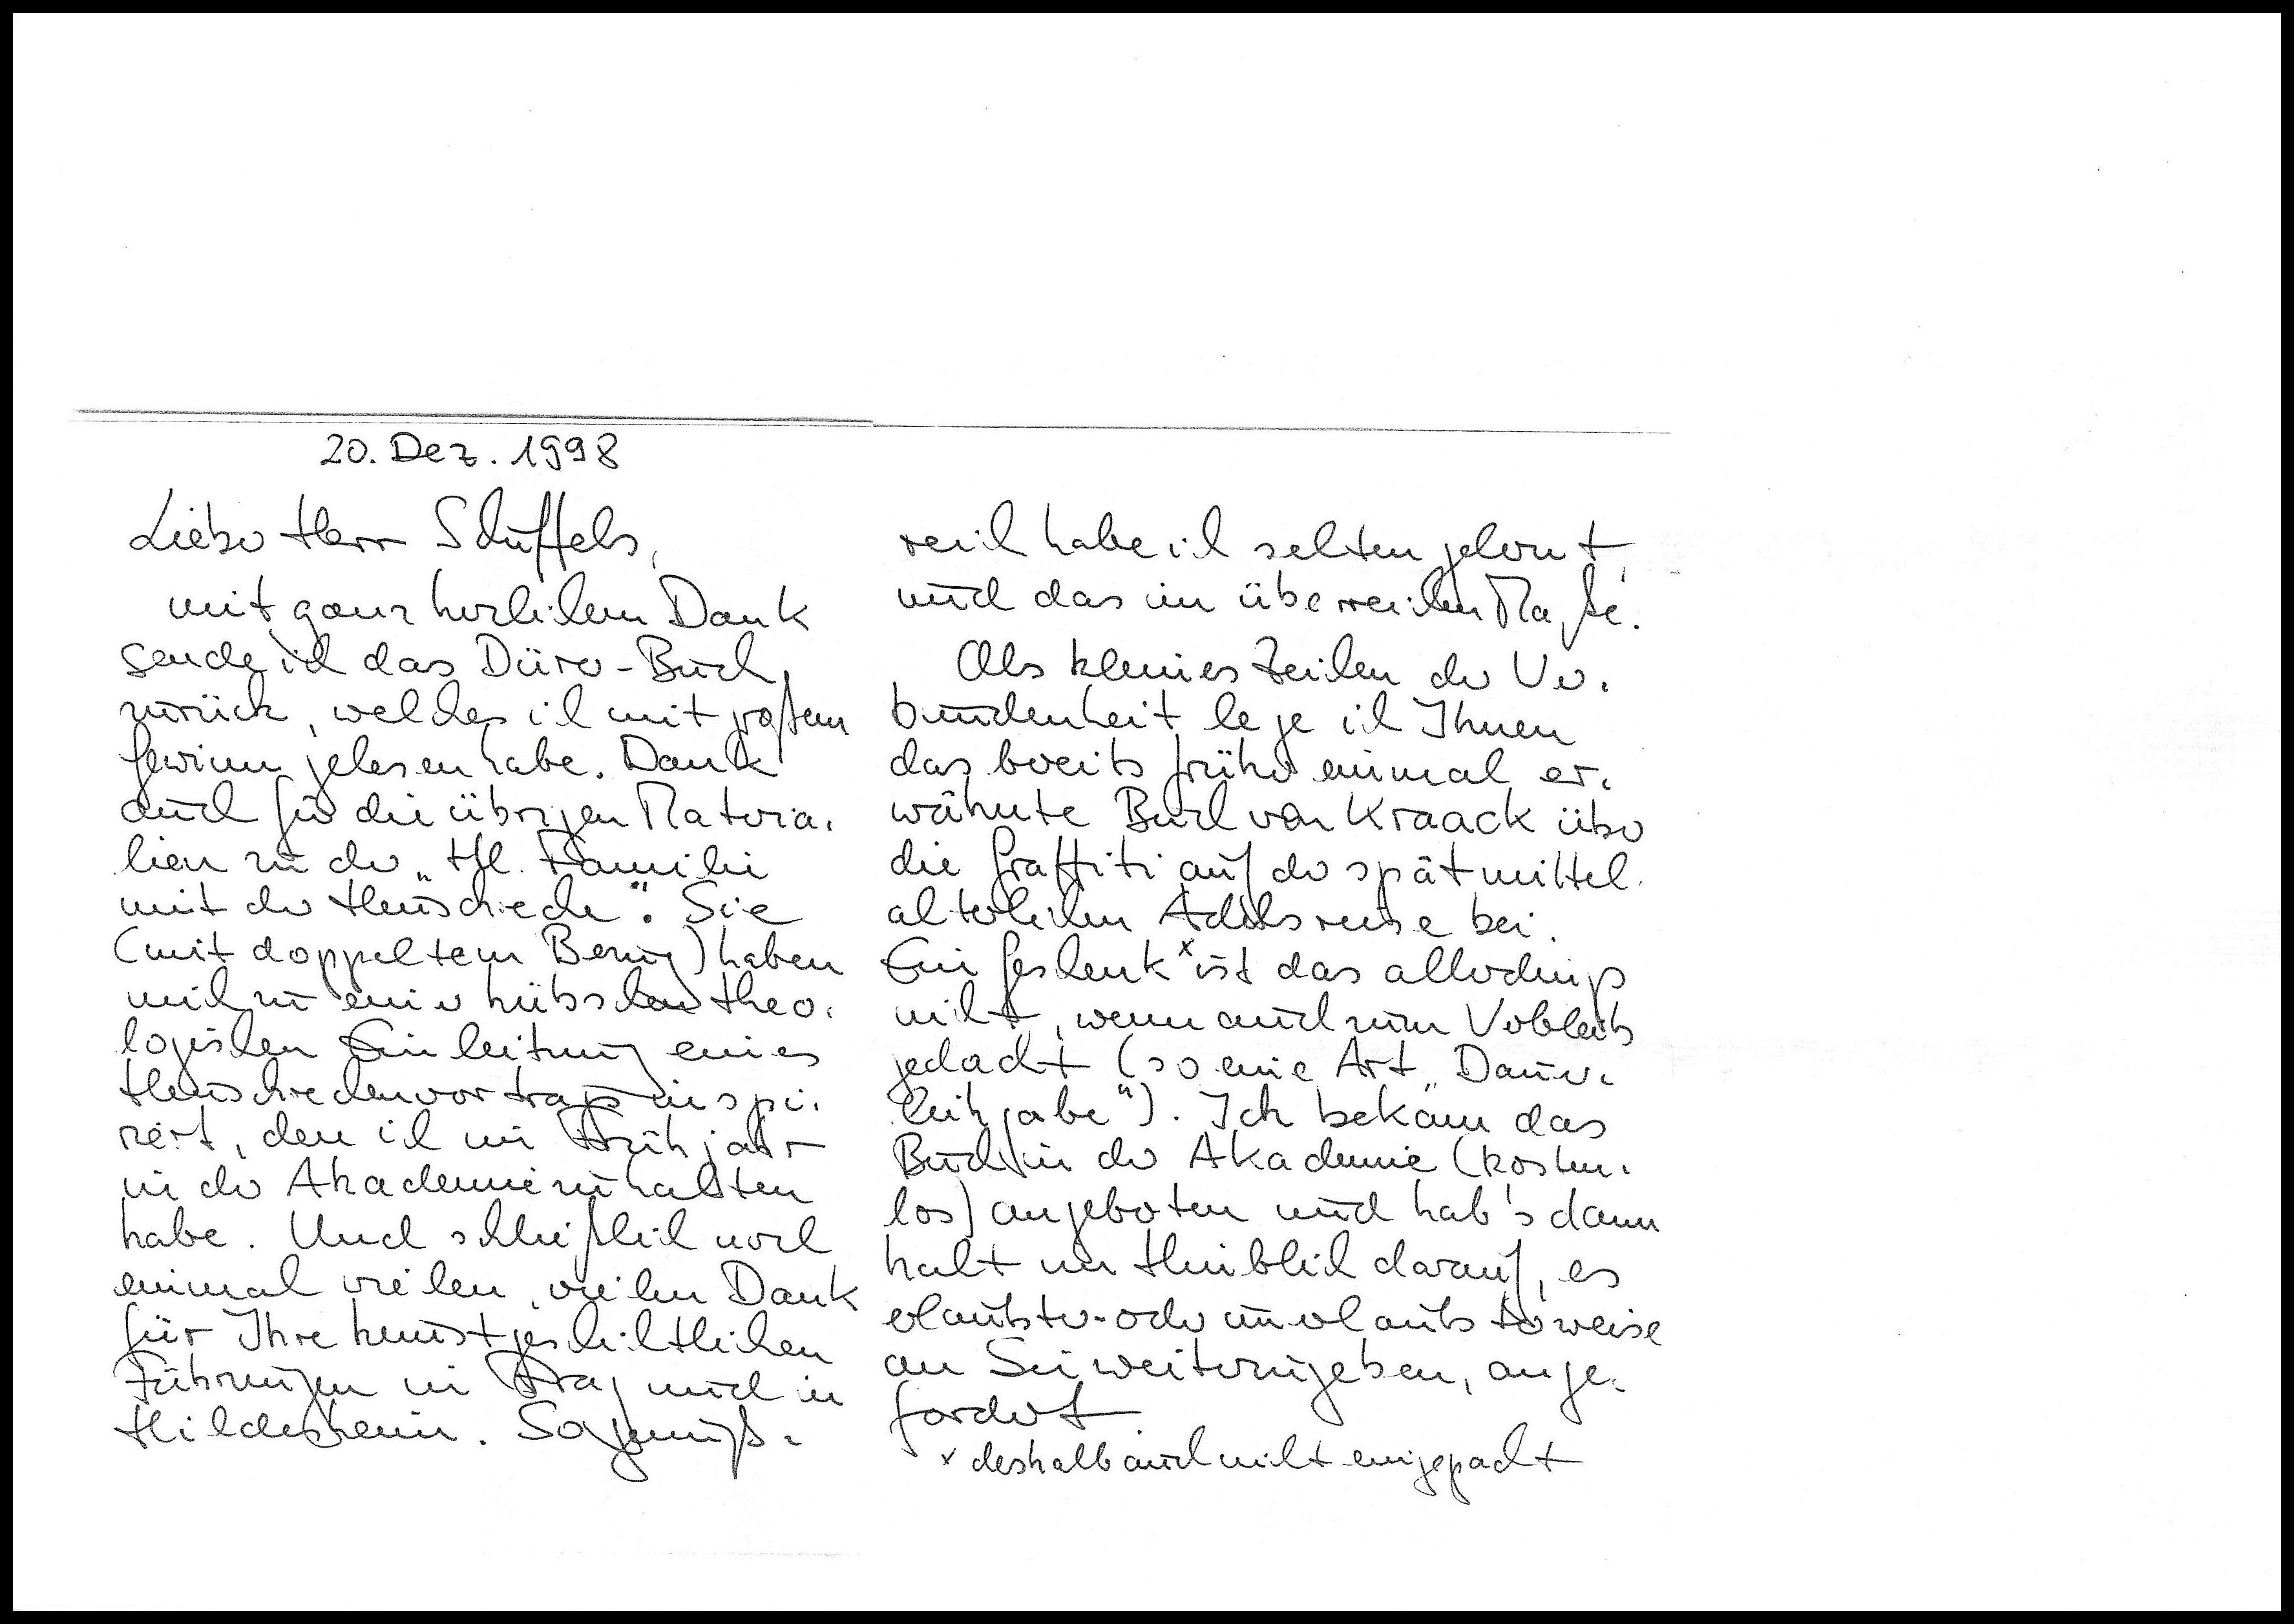 20. Dez. 1998
Lieber Herr Schuffels,
mit ganz herzlichem Dank
sende ich das Dürer-Buch
zurück, welches ich mit großem
Gewinn gelesen habe. Dank
auch für die übrigen Materia-
lien zu der „Hl. Familie
mit der Heuschrecke". Sie
(mit doppeltem Bezug) haben
mich zu einer hübschen theo-
logischen Einleitung eines
Heuschreckenvortrags inspi-
riert, den ich im Frühjahr
in der Akademie zu halten
habe. Und schließlich noch
einmal vielen, vielen Dank
für Ihre kunstgeschichtlichen
Führungen in Prag und in
Hildesheim. So genuß-
reich habe ich selten gelernt,
und das im überreichen Maße.
Als kleines Zeichen der Ver-
bundenheit lege ich Ihnen
das bereits früher einmal er-
wähnte Buch von Kraack über
die Graffiti auf der spätmittel-
alterlichen Adelsreise bei.
Ein Geschenk x ist das allerdings
nicht, wenn auch zum Verbleib
gedacht (so eine Art „Dauer-
leihgabe"). Ich bekam das
Buch in der Akademie (kosten-
los) angeboten und hab's dann
halt im Hinblick darauf, es
erlaubter- oder unerlaubterweise
an Sie weiterzugeben, ange-
fordert.
x deshalb auch nicht eingepackt